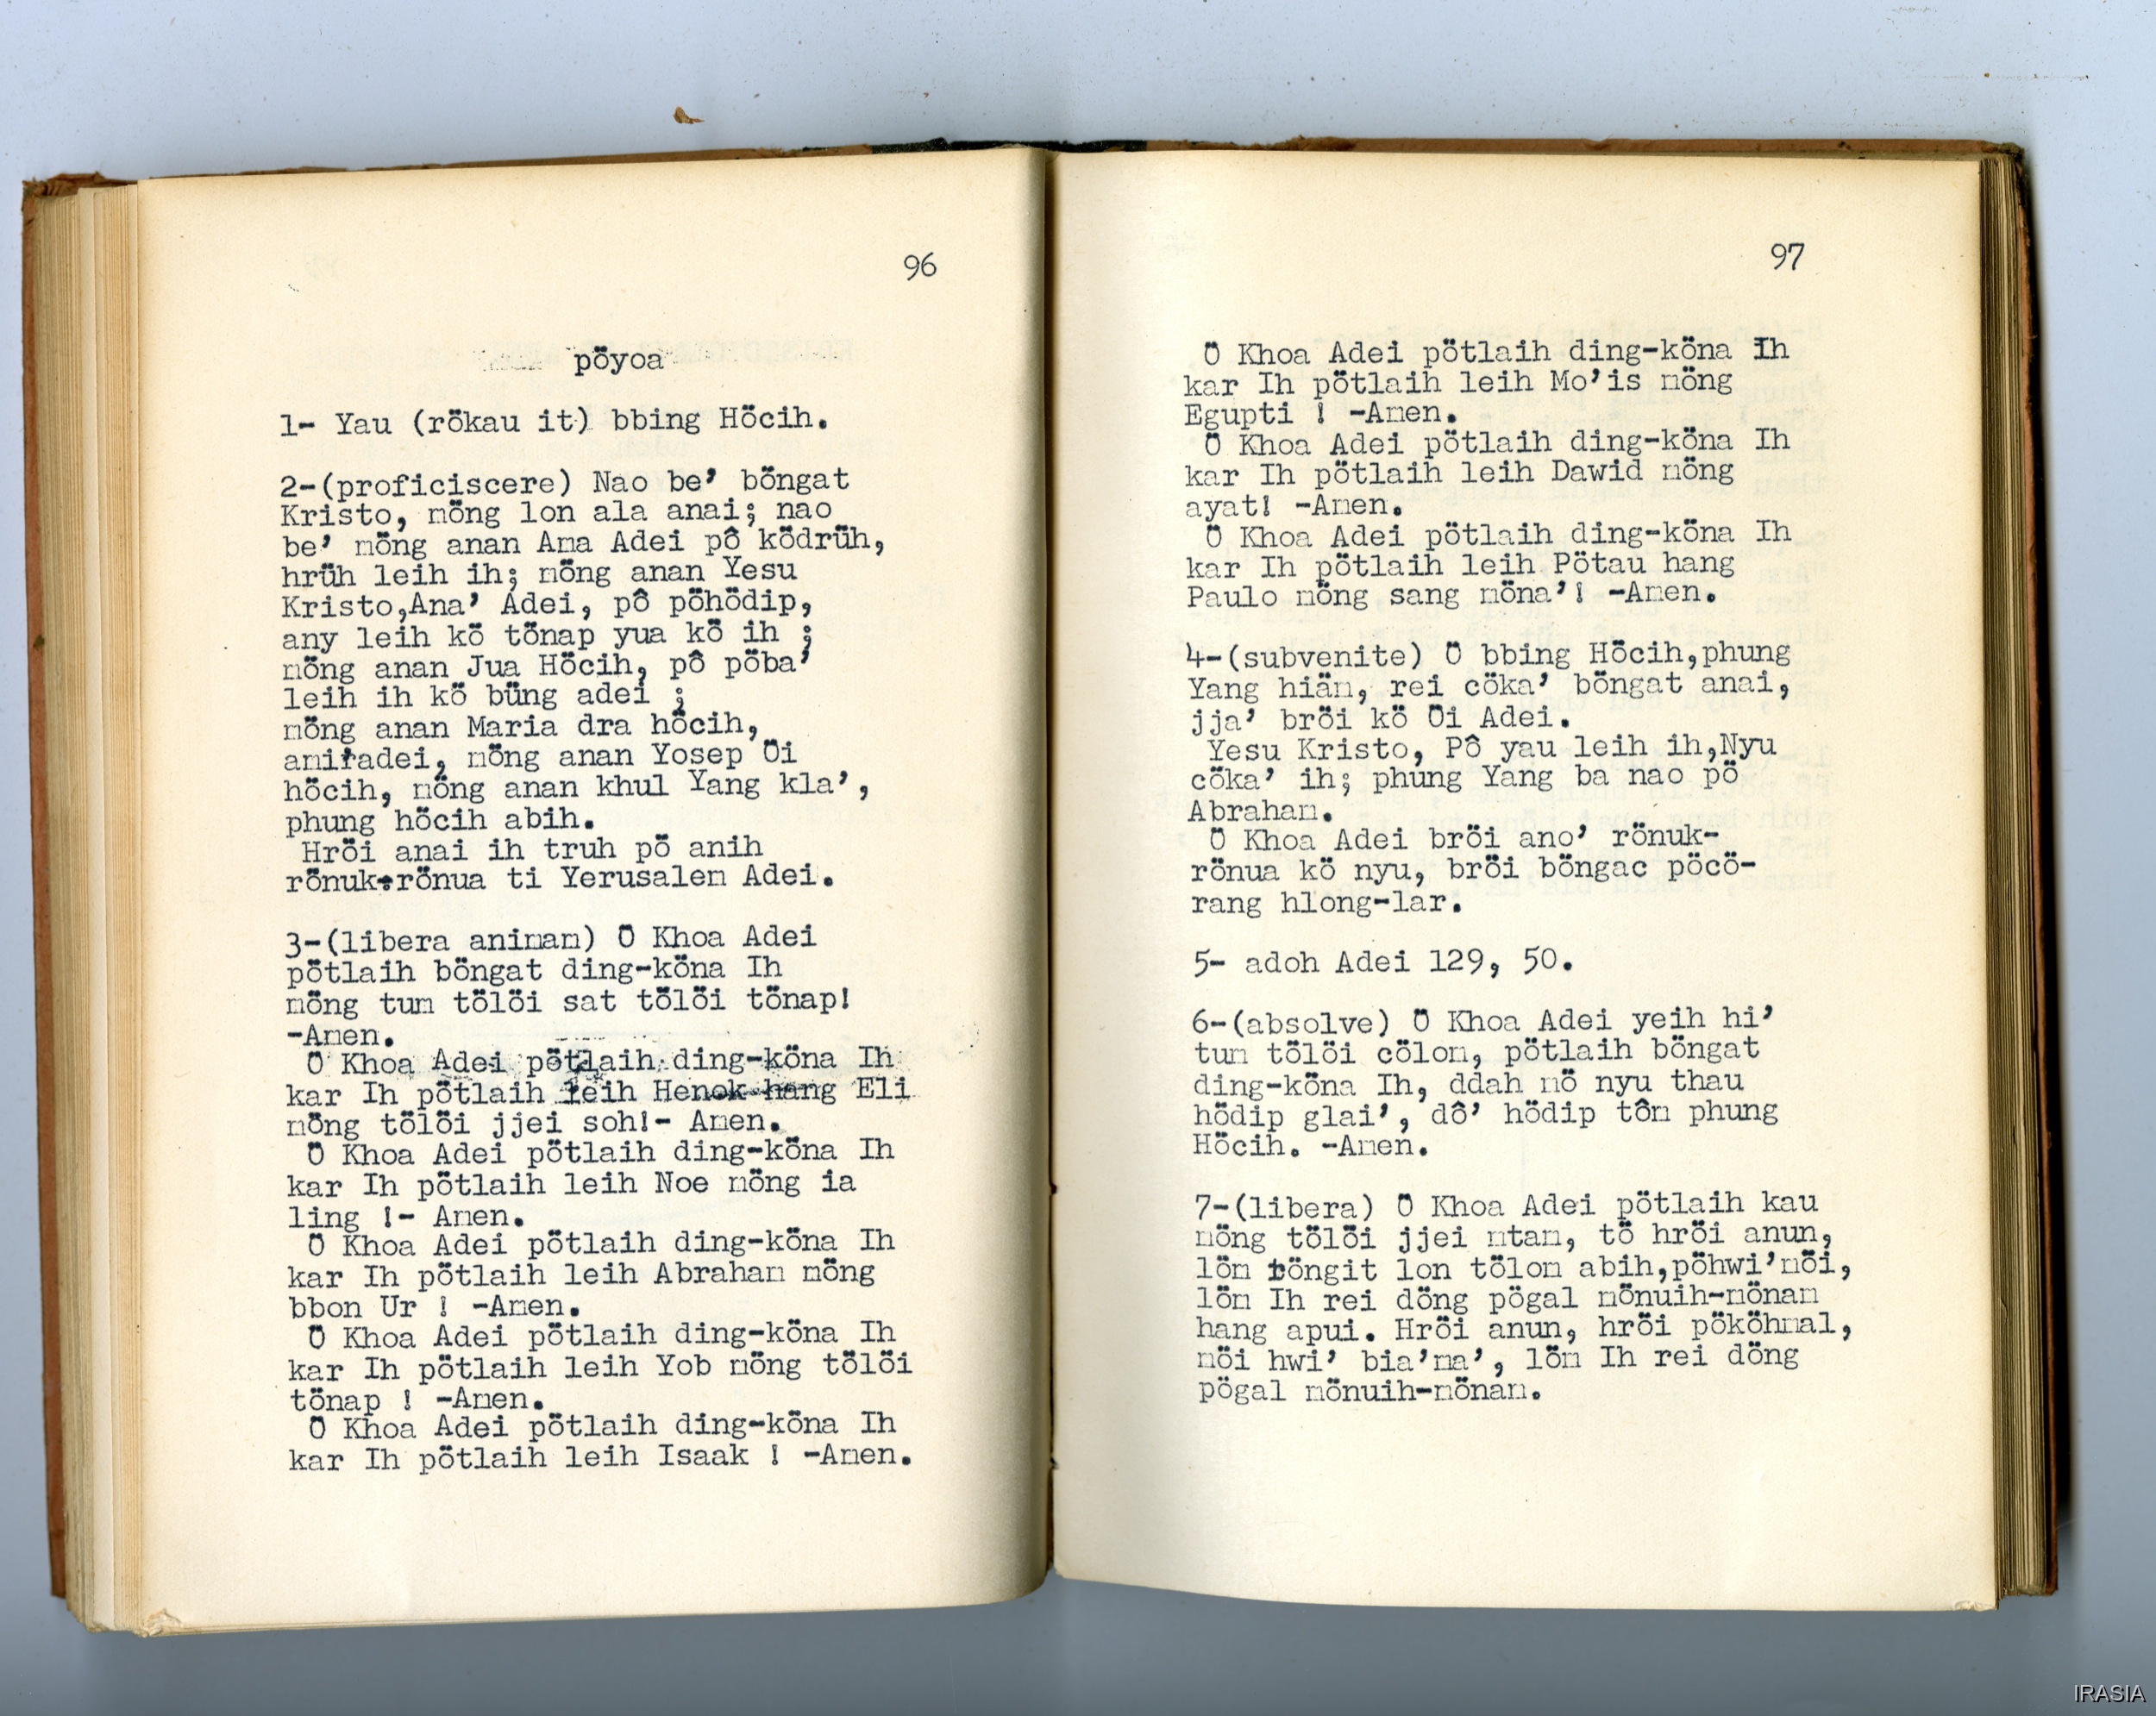 96
pöyoa
1- Yau (rökau it) bbing Höcih.
2-(proficiscere) Nao be’ böngat
Kristo, möng lon ala anai; nao
be’ möng anan Ama Adei pô ködrüh,
hrüh leih ih; möng anan Yesu
Kristo,Ana’ Adei, pô pöhödip,
any leih kö tönap yua kö ih ;
möng anan Jua Höcih, pô pöba’
leih ih kö büng adei ;
möng anan Maria dra höcih,
ami adei, möng anan Yosep Öi
höcih, möng anan khul Yang kla’,
phung höcih abih.
Hröi anai ih truh pö anih
rönuk-rönua ti Yerusalem Adei.
3-(libera animam) Ö Khoa Adei
pötlaih böngat ding-köna Ih
möng tum tölöi sat tölöi tönap!
-Amen.
Ö Khoa Adei pötlaih ding-köna Ih
kar Ih pötlaih leih Henok hang Eli
möng tölöi jjei soh!- Amen.
Ö Khoa Adei pötlaih ding-köna Ih
kar Ih pötlaih leih Noe möng ia
ling !- Amen.
Ö Khoa Adei pötlaih ding-köna Ih
kar Ih pötlaih leih Abraham möng
bbon Ur ! -Amen.
Ö Khoa Adei pötlaih ding-köna Ih
kar Ih pötlaih leih Yob möng tölöi
tönap ! -Amen.
Ö Khoa Adei pötlaih ding-köna Ih
kar Ih pötlaih leih Isaak ! -Amen.
97
Ö Khoa Adei pötlaih ding-köna Ih
kar Ih pötlaih leih Mo’is möng
Egupti ! -Amen.
Ö Khoa Adei pötlaih ding-köna Ih
kar Ih pötlaih leih Dawid möng
ayat! -Amen.
Ö Khoa Adei pötlaih ding-köna Ih
kar Ih pötlaih leih Pötau hang
Paulo möng sang möna’! -Amen.
4-(subvenite) Ö bbing Höcih,phung
Yang hiäm, rei cöka’ böngat anai,
jja’ bröi kö Öi Adei.
Yesu Kristo, Pô yau leih ih,Nyu
cöka’ ih; phung Yang ba nao pö
Abraham.
Ö Khoa Adei bröi ano’ rönuk-
rönua kö nyu, bröi böngac pöcö-
rang hlong-lar.
5- adoh Adei 129, 50.
6-(absolve) Ö Khoa Adei yeih hi’
tum tölöi cölom, pötlaih böngat
ding-köna Ih, ddah mö nyu thau
hödip glai’, dô’ hödip tôm phung
Höcih. -Amen.
7-(libera) Ö Khoa Adei pötlaih kau
möng tölöi jjei mtam, tö hröi anun,
löm röngit lon tölom abih,pöhwi’möi,
löm Ih rei döng pögal mönuih-mönam
hang apui. Hröi anun, hröi pököhmal,
möi hwi’ bia’ma’, löm Ih rei döng
pögal mönuih-mönam.
IRASIA